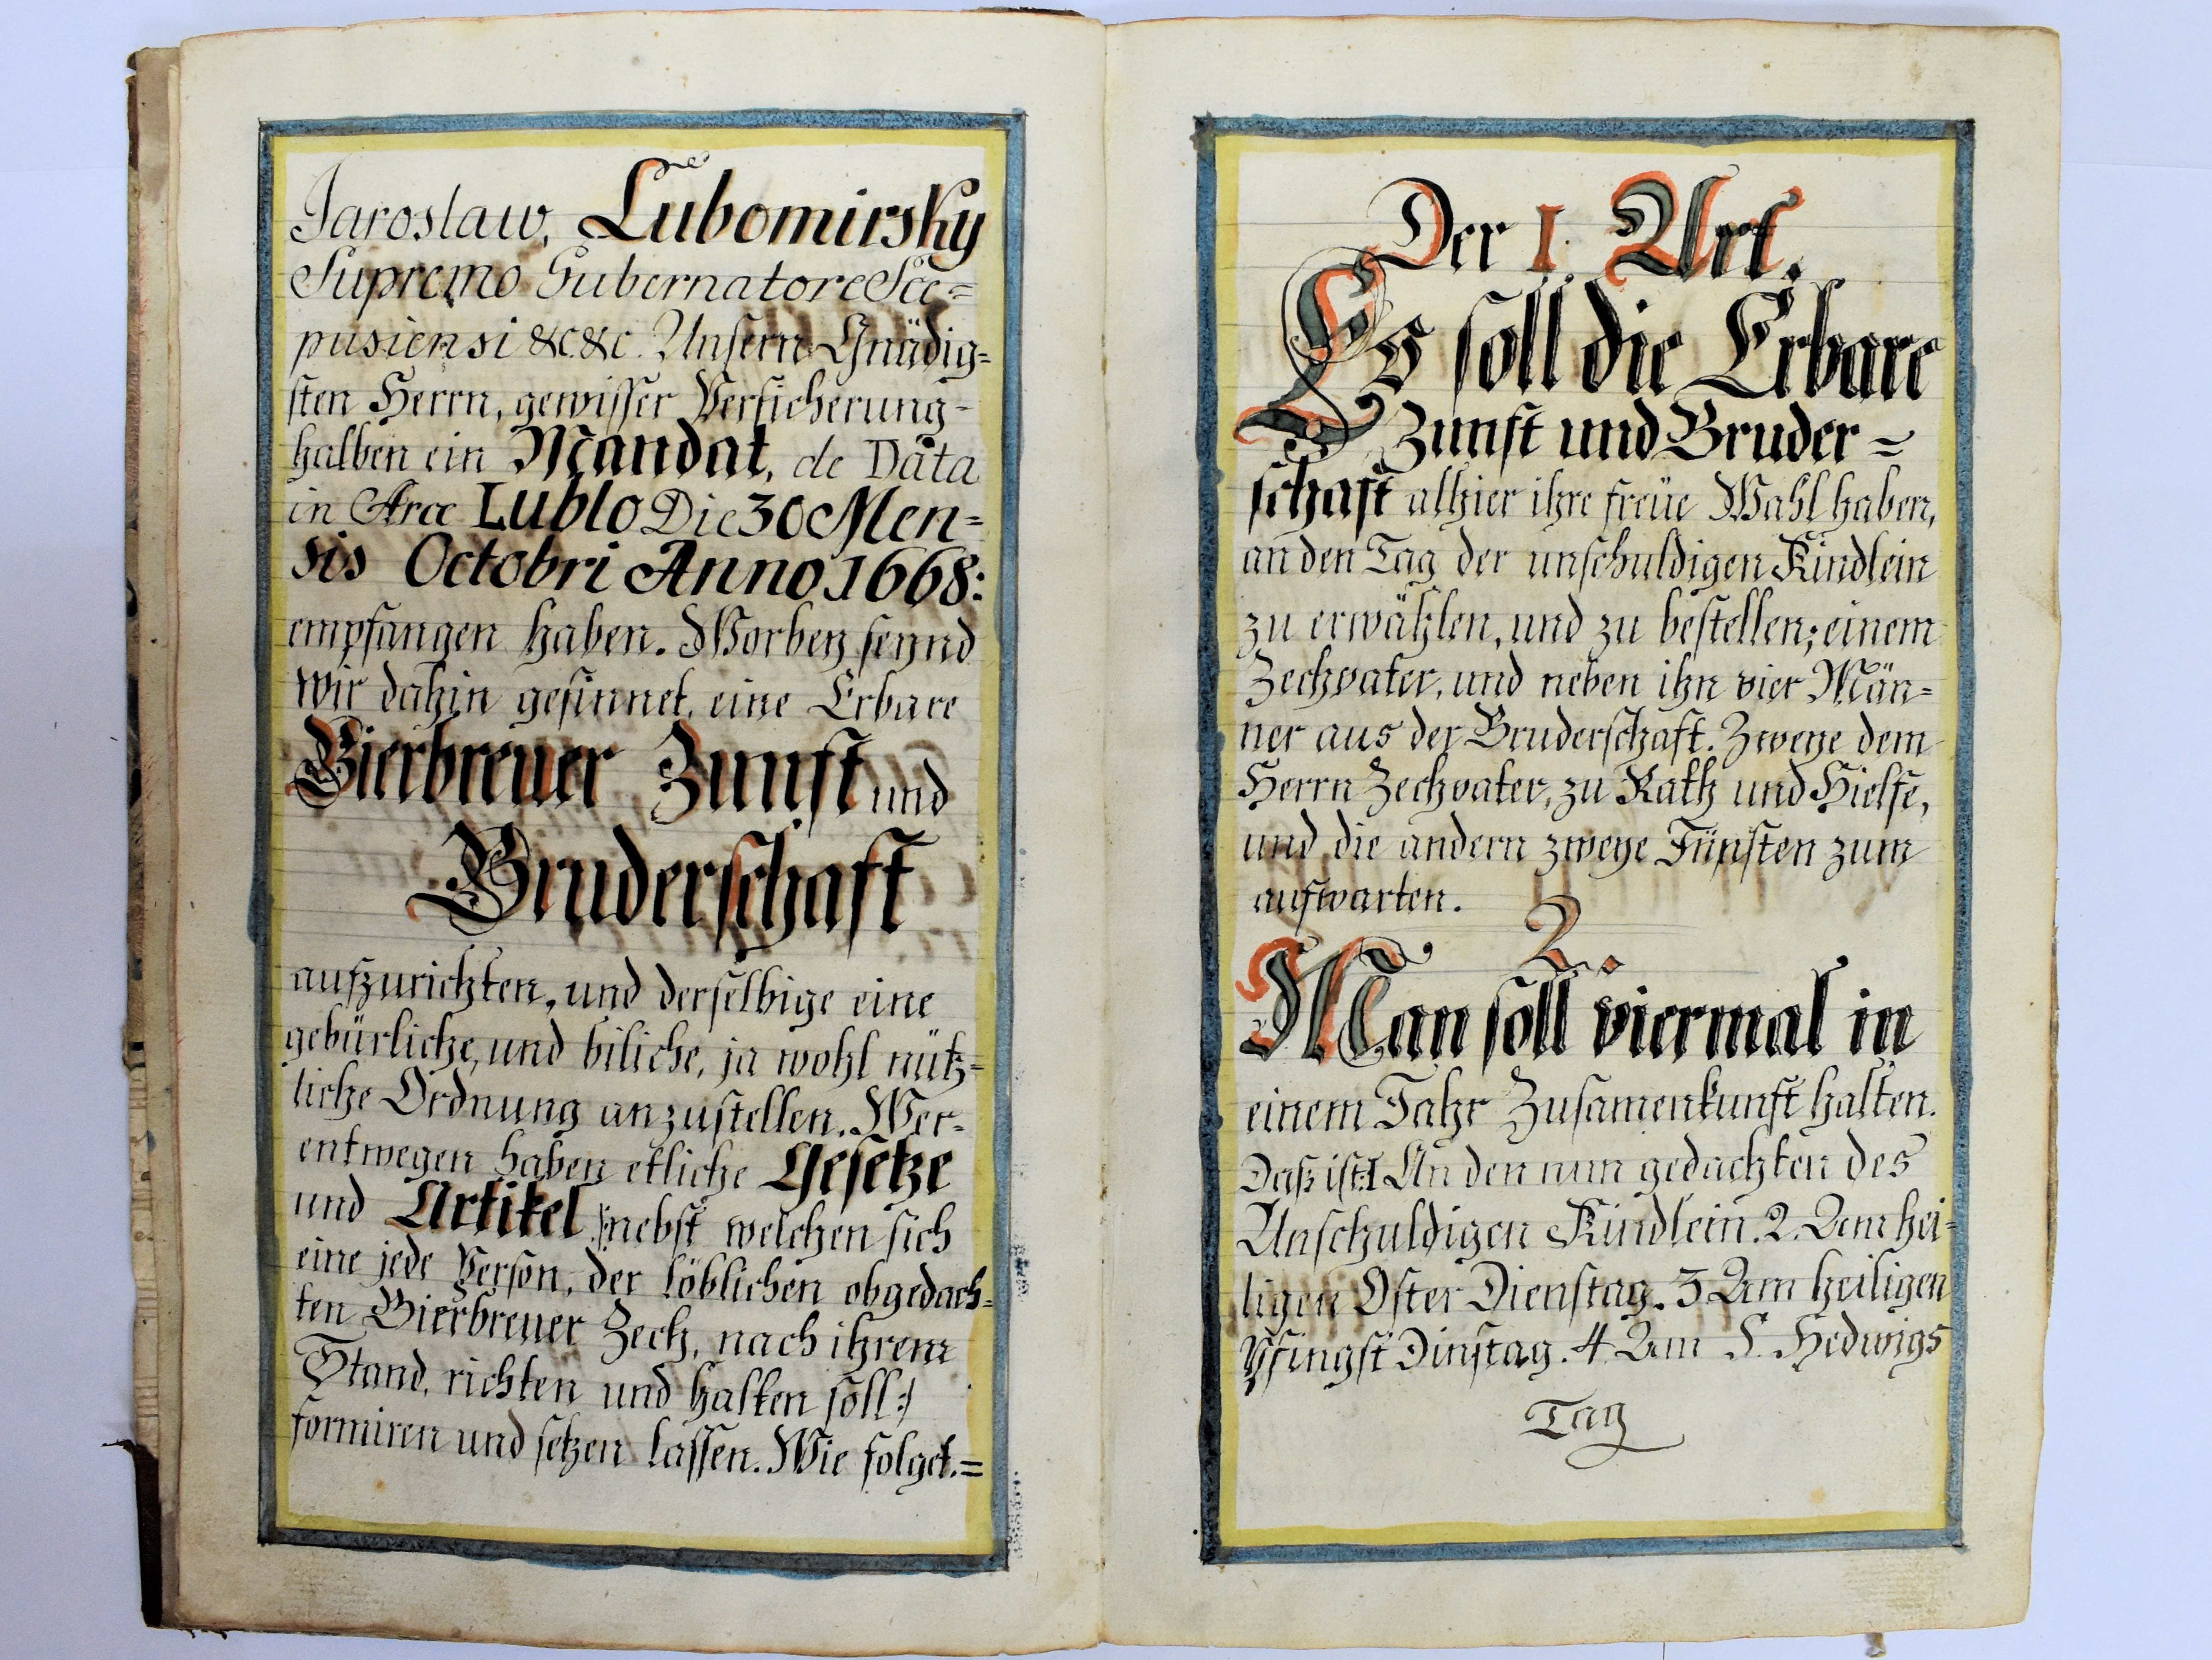 Jaroslaw, Lŭbomirsky
Sŭpremo Gubernatore Sce=
pusiensi &c &c. Unsern Gnädig=
sten Herrn, gewisser Versicherung-
halben ein Mandat, de Data
in Arce Lublo Die 30 Men=
sis Octobri Anno 1668:
empfangen haben. Worbey seynd
wir dahin gesinnet, eine Erbare
Bierbreuer Zunft und
Bruderschaft
aufzurichten, und derselbige eine
gebürliche, und biliche, ja wohl nütz=
liche Ordnung anzustellen. Wer-
entwegen haben etliche Gesetze
und Artikel /:nebst welchen sich
eine jede Person, der löblichen obgedach=
ten Bierbreuer Zech, nach ihrem
Stand, richten und halten soll:/
formiren und setzen lassen. Wie folget.=
Der I. Art.
Es soll die Erbare
Zunft und Bruder=
schaft alhier ihre freüe Wahl haben,
an den Tag der unschuldigen Kindlein
zu erwählen, und zu bestellen; einem
Zechvater, und neben ihn vier Män=
ner aus der Bruderschaft. Zweye dem
Herrn Zechvater, zu Rath und Hielfe,
und die andern zweye Jüngsten zum
aufwarten.
2.
Man soll viermal in
einem Jahr Zusamenkunft halten.
Daß ist: 1 An den nun gedachten des
Unschuldigen Kindlein. 2. Am hei=
ligen Oster Dienstag. 3 Am heiligen
Pfingst Dinstag. 4. Am S. Hedwigs
Tag